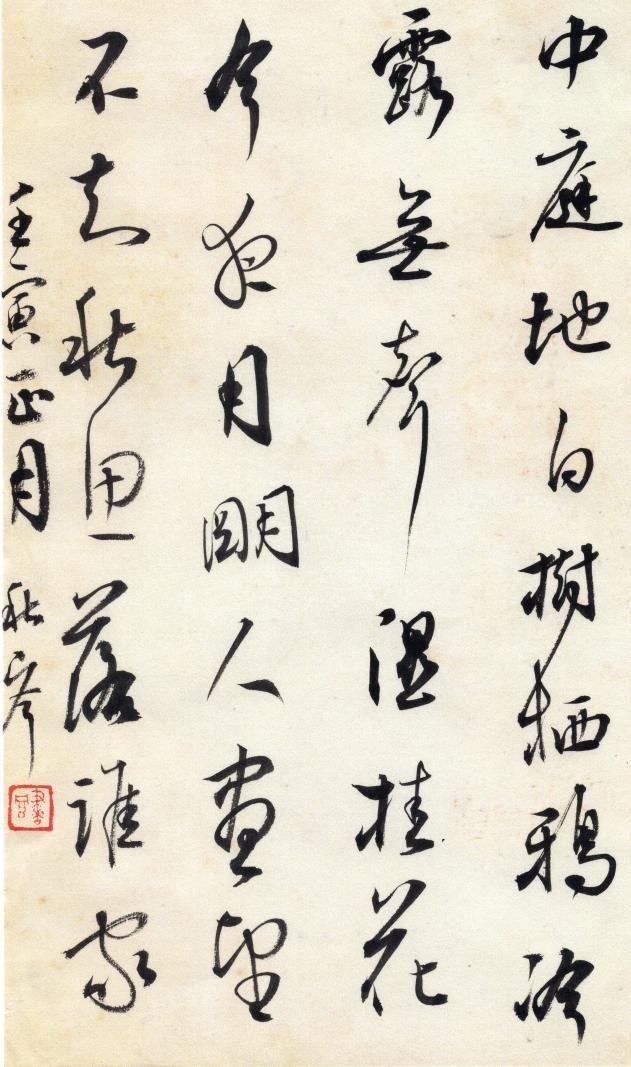 中庭地白樹栖鴉冷
露無聲濕桂花
今夜月明人盡望
不知秋思落誰家
壬寅正月 秋